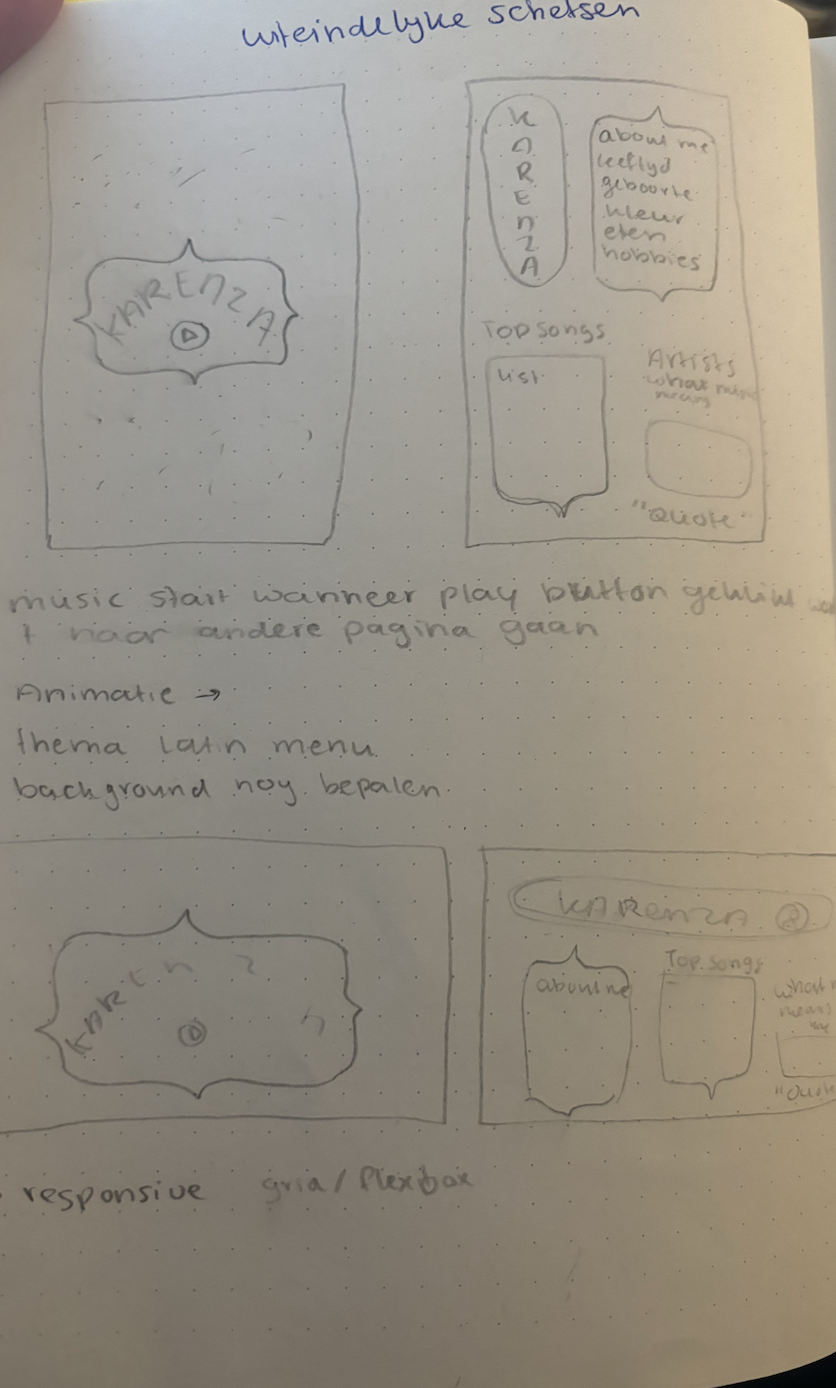 uiteindelyke schetsen
KARENZA
KARENZA
about me
leeftyd
geboorte
kleur
eten
hobbies
Top songs
list
Artists
what music
means
"Quote"
music start wanneer play button geklikt
+ naar andere pagina gaan
Animatie →
thema Latin menu
background nog bepalen.
KARENZA
KARENZA
about me
Top songs
what
means
me
"Quote
responsive grid/flexbox